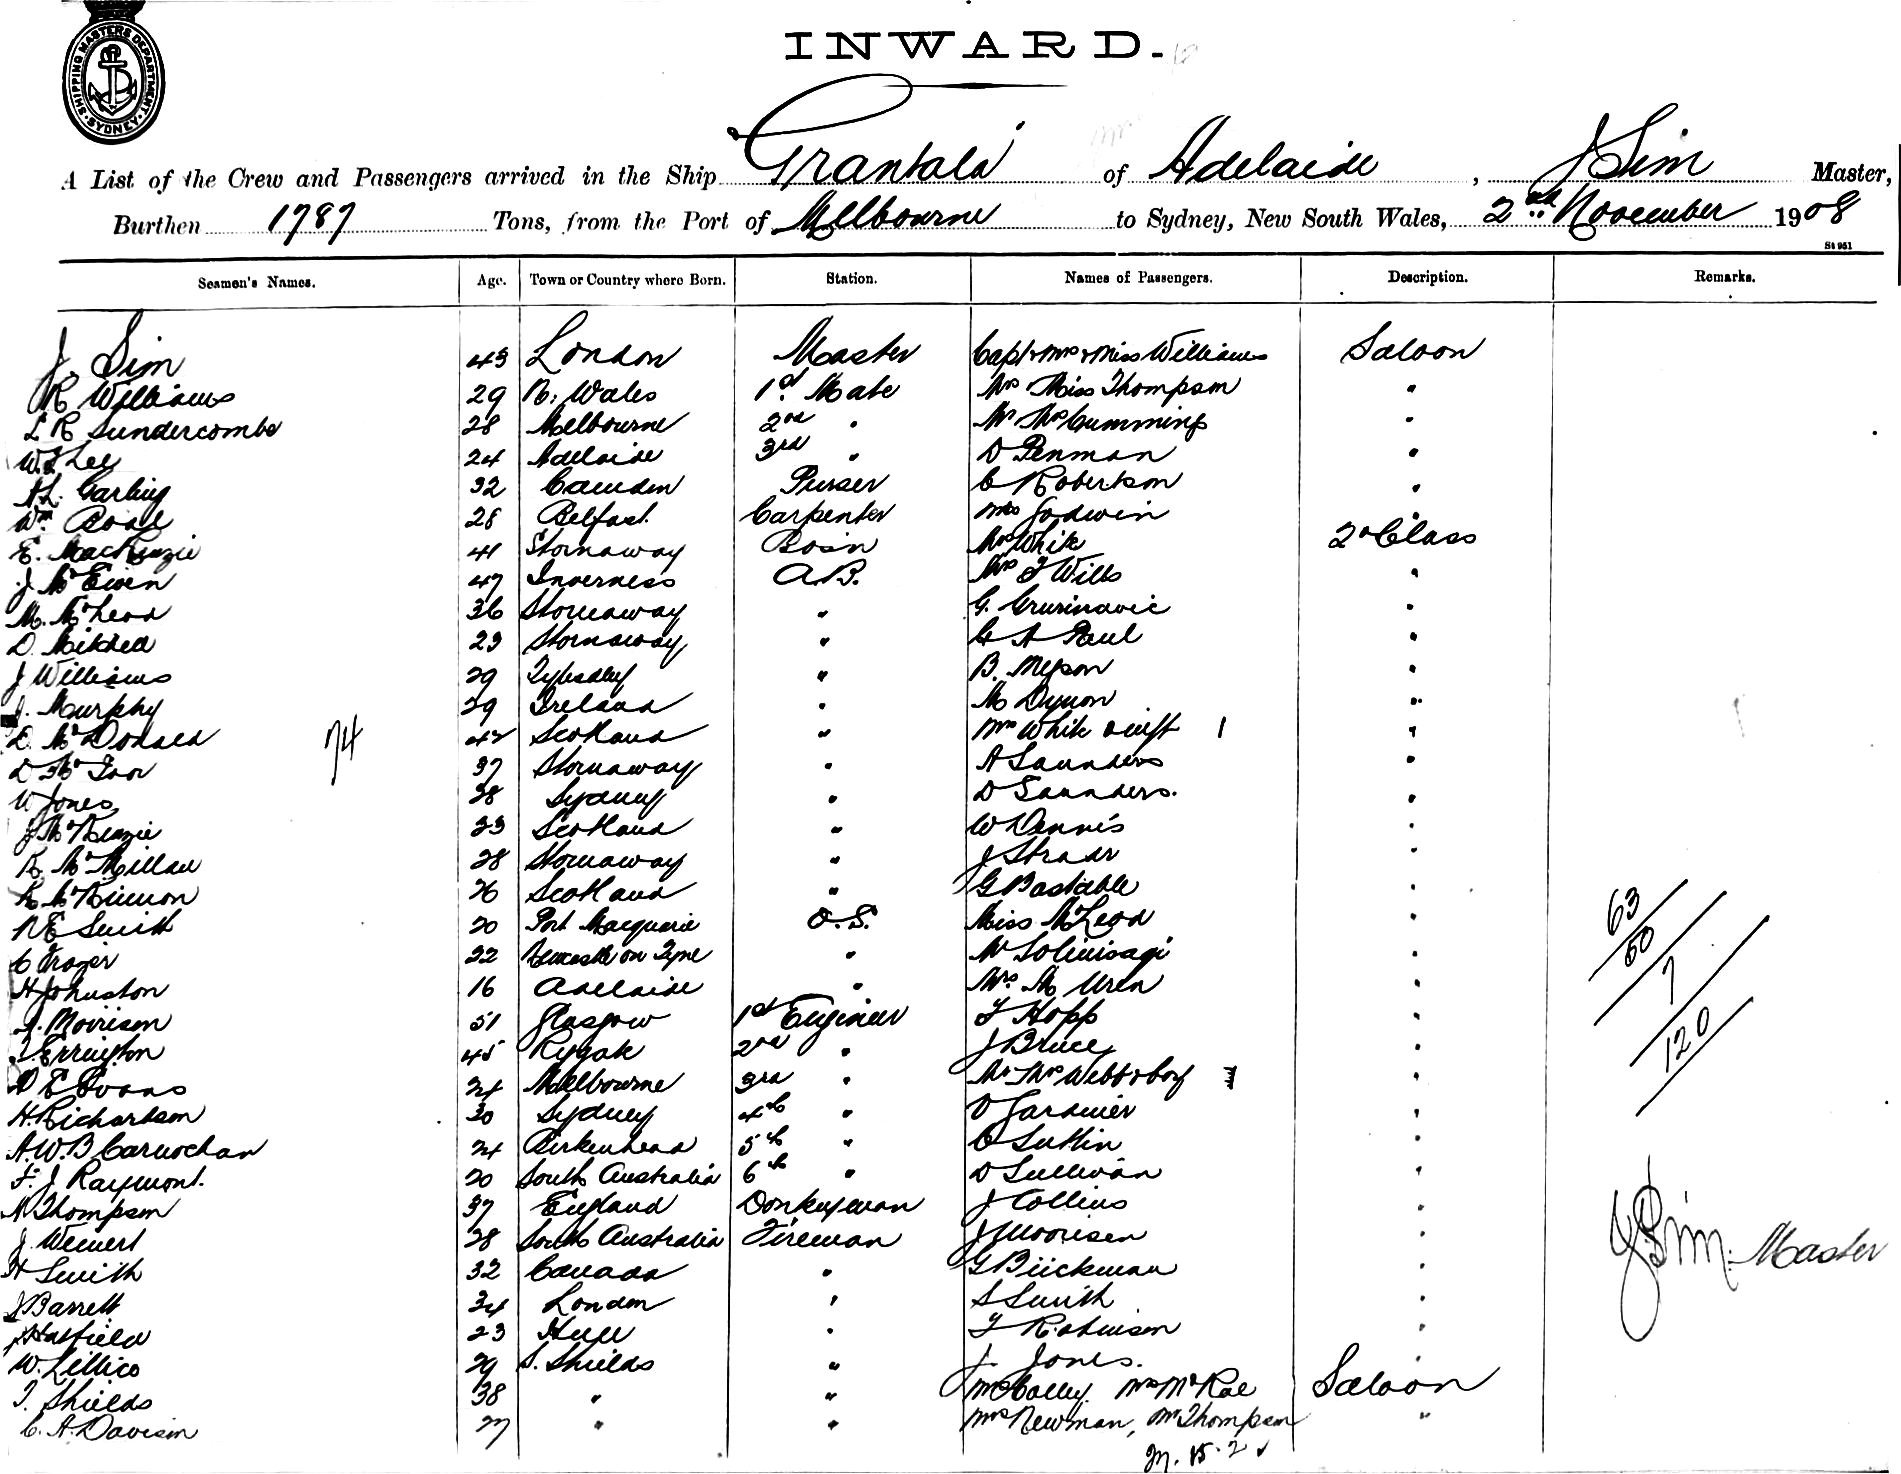 SHIPPING MASTERS DEPARTMENT
SYDNEY
INWARD.
A List of the Crew and Passengers arrived in the Ship Grantala of Adelaide, J Sim Master,
Burthen 1787 Tons, from the Port of Melbourne to Sydney, New South Wales, 2nd November 1908
St 951
Seamen's Names. Age. Town or Country where Born. Station. Names of Passengers. Description. Remarks.
J. Sim 43 London Master Capt Mrs & Miss Williams Saloon
R Williams 29 N. Wales 1st Mate Mrs Miss Thompson "
L R Sundercombe 28 Melbourne 2nd " Mr Mrs Cumming "
W. Lee 24 Adelaide 3rd " D Penman "
A.L. Garling 32 Camden Purser C Robertson "
Wm Boal 28 Belfast. Carpenter Mrs Godwin "
E. MacKenzie 41 Stornaway Bosn Mrs White 2nd Class
J McEwen 47 Inverness A.B. Mrs J Wills "
M. McLeod 36 Stornaway " G. "
D. 23 Stornaway " C A Paul "
J Williams 29 Tyldesley " B. Myson "
J. Murphy 29 Ireland " M Dynon "
D. McDonald 74 42 Scotland " Mrs White & inft 1 "
D McIvor 37 Stornaway " A Saunders "
W Jones 28 Sydney " D Saunders. "
J McKenzie 23 Scotland " W Dennis "
R. McMillan 28 Stornaway " J "
McKinnon 26 Scotland " G Bastable "
N E Smith 20 Port Macquarie O.S. Miss McLeod "
C Frazer 22 Newcastle on Tyne " "
H Johnston 16 Adelaide " Mrs M Uren "
A. Morrison 51 Glasgow 1st Engineer F Hopp "
Errington 45 2nd " J Bruce "
D E Evans 24 Melbourne 3rd " Mr Mrs Webb & boy 1 "
H. Richardson 30 Sydney 4th " D Gardiner "
A.W.B Carnochan 24 Birkenhead 5th " C "
F. J Raymont. 20 South Australia 6th " D Sullivan "
A Thompson 37 England Donkeyman J Collins "
J. Weinert 28 South Australia Fireman J Morrisen "
H Smith 32 Canada " G Biickman "
J Barrett 34 London " S Smith "
J Hatfield 23 Hull " F Robinson "
W. Lillico 29 S. Shields " J. Jones. "
T. Shields 38 " " Mrs McRae Saloon
C. A. Davison 27 " " Mrs Newman, Mr Thompson "
M. 15. 2
63
50
7
120
J. Sim. Master